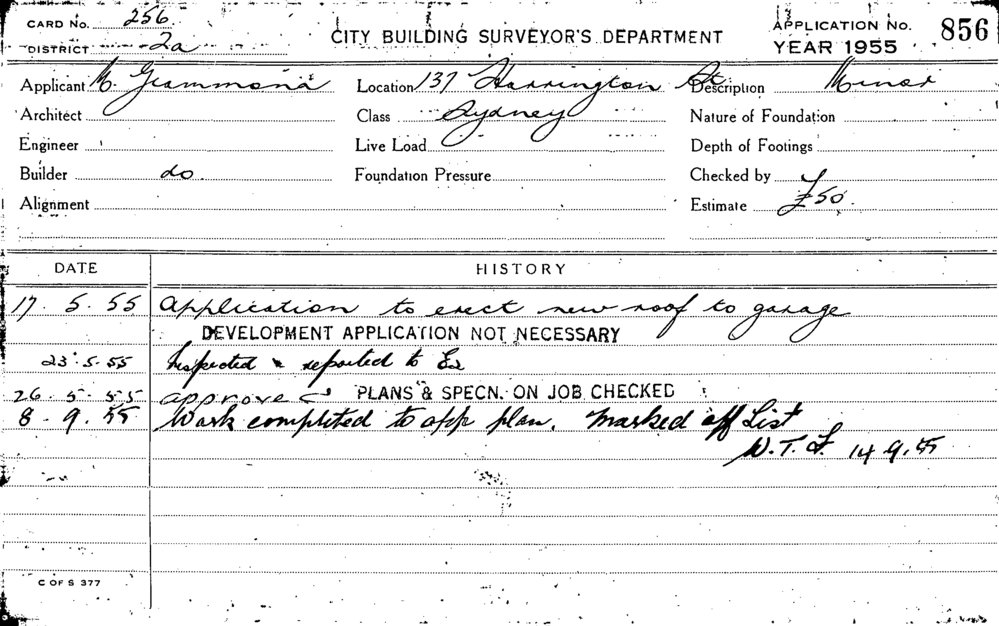 CARD NO. 256
DISTRICT 2a
CITY BUILDING SURVEYOR'S DEPARTMENT
APPLICATION NO. 856
YEAR 1955
Applicant M. Giammona Location 137 Harrington St. Description Minor
Architect Class Sydney Nature of Foundation
Engineer Live Load Depth of Footings
Builder do. Foundation Pressure Checked by
Alignment Estimate £50.
DATE HISTORY
17. 5. 55 Application to erect new roof to garage
DEVELOPMENT APPLICATION NOT NECESSARY
23.5.55 Inspected & reported to
26. 5. 55 approved PLANS & SPECN. ON JOB CHECKED
8. 9. 55 Work completed to app plan. Marked off List
W.T.F. 14 9.55
C OF S 377